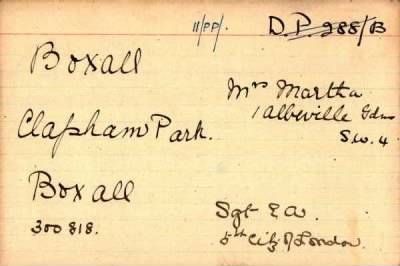 11/PP/. D.P. 288/B
Boxall
Mrs Martha
1 Albeville Gdns
Clapham Park. S.W. 4
Boxall
Sgt E A.
300818.
5th City of London.